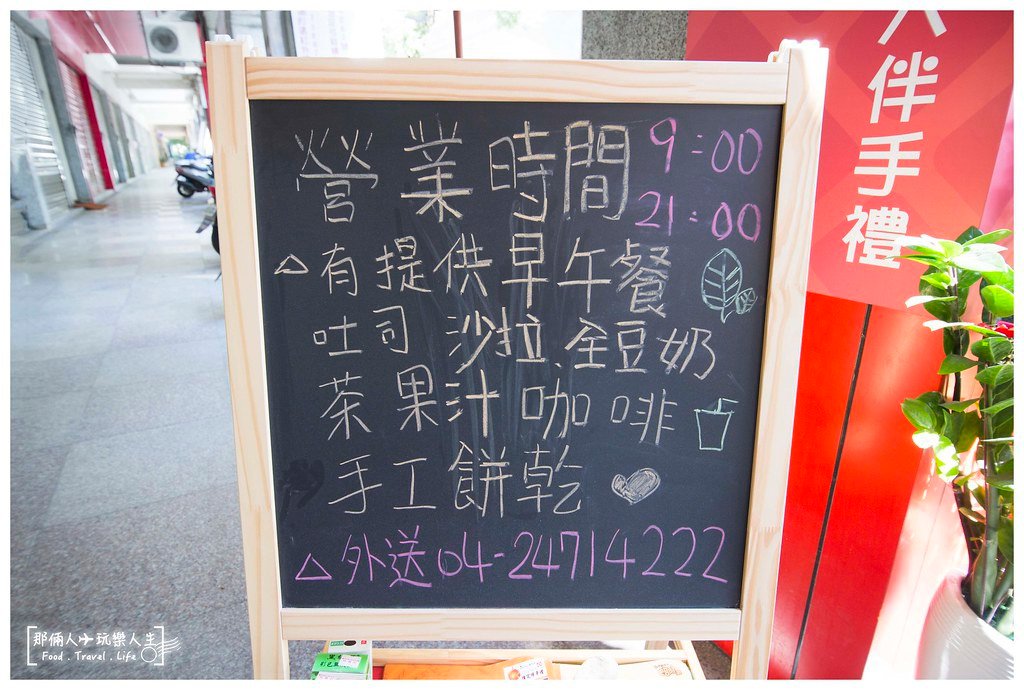 營業時間 9:00
21:00
△有提供早午餐
吐司 沙拉.全豆奶
茶果汁咖啡
手工餅乾
△外送04-24714222
人伴手禮
那倆人玩樂人生
Food . Travel . Life